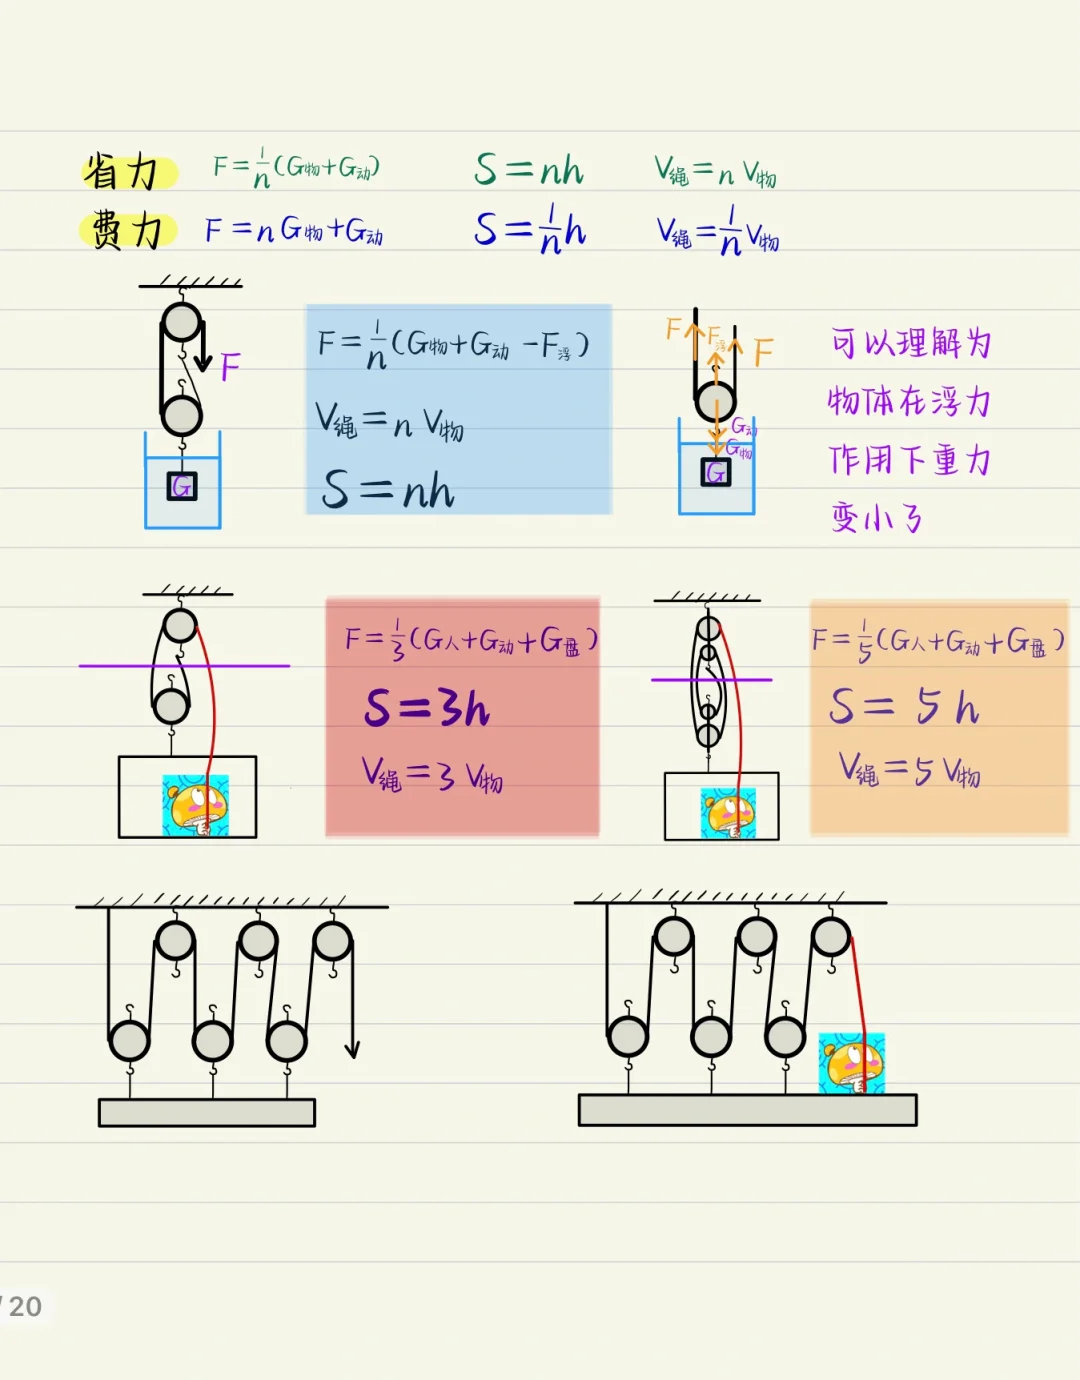 省力 F=1/n(G物+G动) S=nh V绳=nV物
费力 F=nG物+G动 S=1/n h V绳=1/n V物
F
G
F=1/n(G物+G动-F浮)
V绳=nV物
S=nh
F F浮 F
G动
G物
G
可以理解为
物体在浮力
作用下重力
变小了
F=1/3(G人+G动+G盘)
S=3h
V绳=3V物
F=1/5(G人+G动+G盘)
S=5h
V绳=5V物
/20